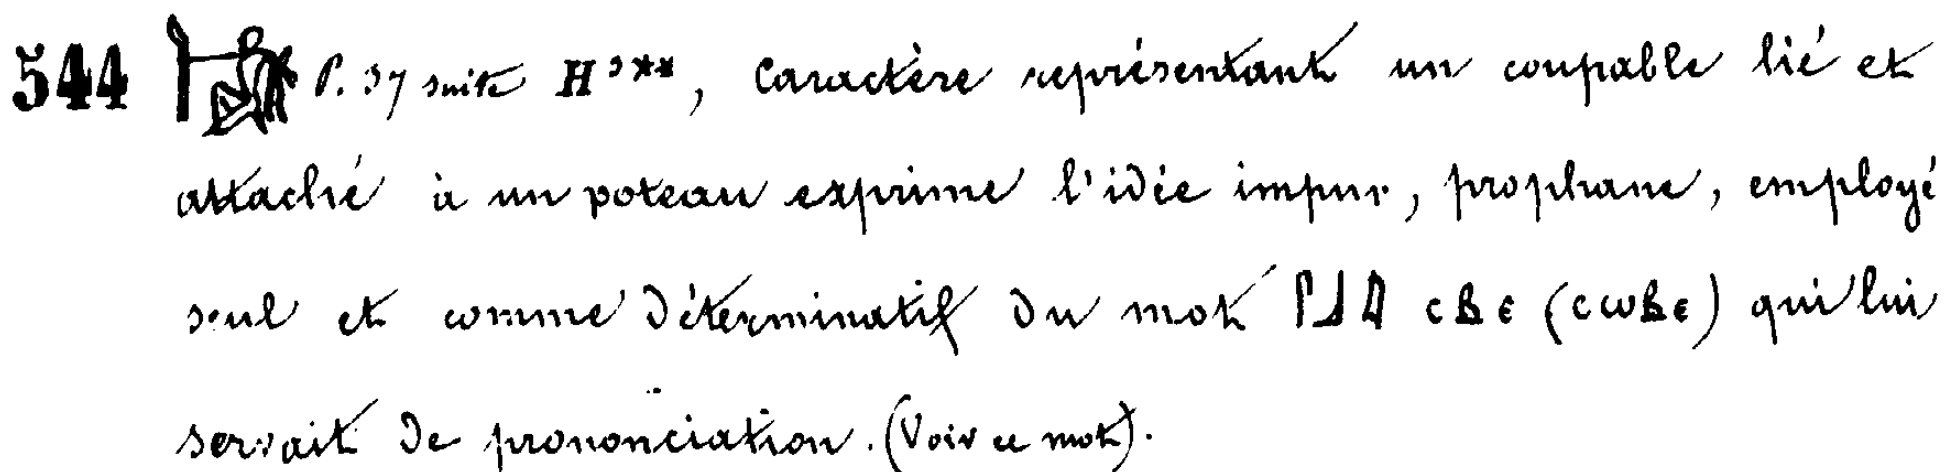 544 P. 37 suite H³**, Caractère représentant un coupable lié et
attaché à un poteau exprime l'idée impur, prophane, employé
seul et comme déterminatif du mot 𓋴𓃀𓇋 ⲥⲃⲉ (ⲥⲱⲃⲉ) qui lui
servait de prononciation. (Voir ce mot).